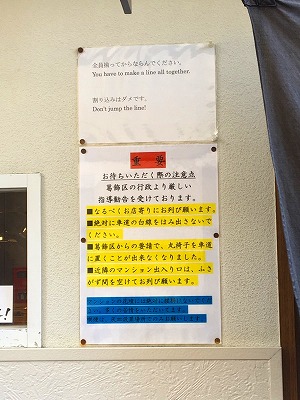 全員揃ってからならんでください。
You have to make a line all together.
割り込みはダメです。
Don't jump the line!
重要
お待ちいただく際の注意点
葛飾区の行政より厳しい
指導勧告を受けております。
■なるべくお店寄りにお列び願います。
■絶対に車道の白線をはみ出さないで
ください。
■葛飾区からの要請で、丸椅子を車道
に置くことが出来なくなりました。
■近隣のマンション出入り口は、ふさ
がず間を空けてお列び願います。
!